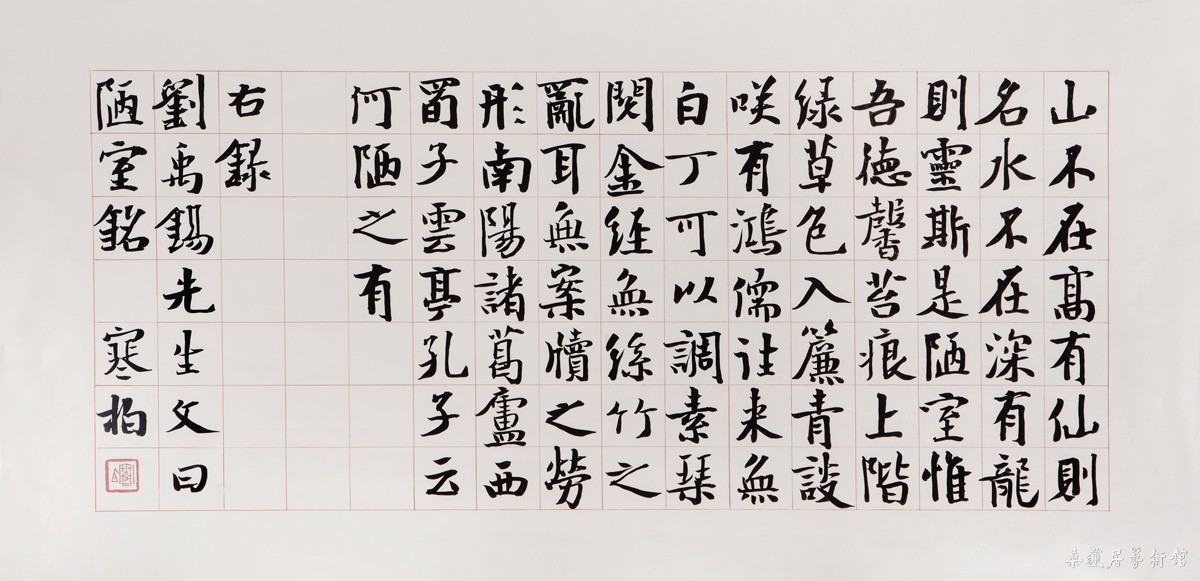 山不在髙有仙則
名水不在深有龍
則靈斯是陋室惟
吾德馨苔痕上階
綠草色入簾青談
咲有鴻儒往来無
白丁可以調素琴
閱金經無絲竹之
亂耳無案牘之勞
形南陽諸葛廬西
蜀子雲亭孔子云
何陋之有
右錄
劉禹錫先生文曰
陋室銘 寒柏
桑蓮居藝術館